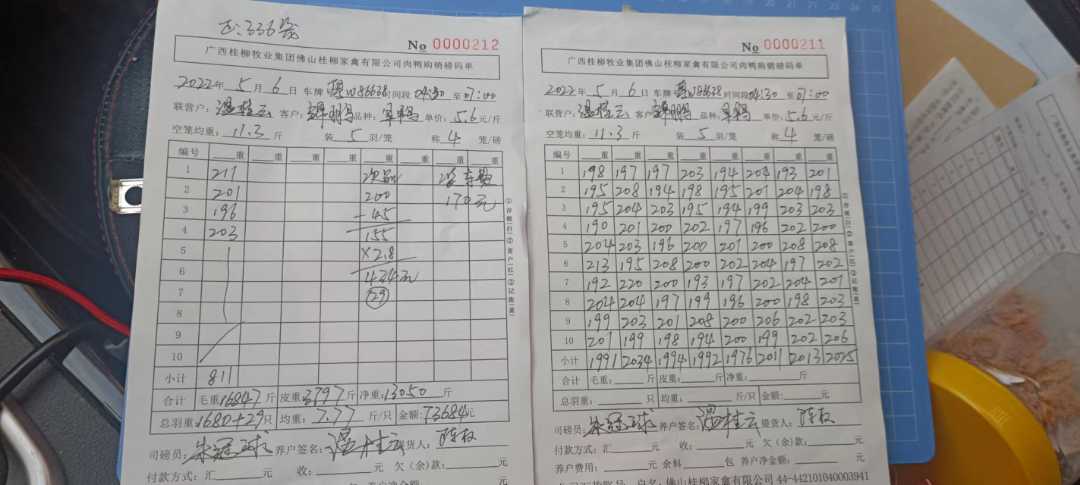 正:336笼
No 0000212
广西桂柳牧业集团佛山桂柳家禽有限公司肉鸭购销磅码单
2022年 5 月 6 日 车牌 W86638 时间段 04:30 至 07:00
联营户: 温桂云 客户: 品种: 单价: 5.6 元/斤
空笼均重: 11.3 斤 装 5 羽/笼 称 4 笼/磅
编号 重 重 重 重 重 重 重 重
1 211
2 201 200 170元
3 196 -45
4 203 155
5 ×2.8
6 434元
7 29
8
9
10
小计 811
合计 毛重: 16847 斤 皮重: 3797 斤 净重: 13050 斤
总羽重: 1680+29 只 均重: 7.77 斤/只 金额: 73684 元
司磅员: 朱冠球 养户签名: 温桂云 提货人: 陈权
付款方式: 汇 元 收: 元 欠(余)款: 元
No 0000211
广西桂柳牧业集团佛山桂柳家禽有限公司肉鸭购销磅码单
2022年 5 月 6 日 车牌 W86638 时间段 04:30 至 07:00
联营户: 温桂云 客户: 品种: 单价: 5.6 元/斤
空笼均重: 11.3 斤 装 5 羽/笼 称 4 笼/磅
编号 重 重 重 重 重 重 重 重
1 198 197 197 203 194 204 193 201
2 195 208 194 198 195 201 204 198
3 195 204 203 195 194 199 203 203
4 190 201 200 202 197 196 202 200
5 204 203 196 200 201 200 208 208
6 213 195 208 200 202 204 197 202
7 192 220 200 193 197 202 204 201
8 204 204 197 199 196 200 198 203
9 199 203 201 208 200 206 202 203
10 201 199 198 194 200 199 202 206
小计 1991 2034 1994 1992 1976 2011 2013 2025
合计 毛重: 斤 皮重: 斤 净重: 斤
总羽重: 只 均重: 斤/只 金额: 元
司磅员: 朱冠球 养户签名: 温桂云 提货人: 陈权
付款方式: 汇 元 收: 元 欠(余)款: 元
养户费用: 元 余料 包 养户净金额: 元
户名: 佛山桂柳家禽有限公司 44-442101040003941